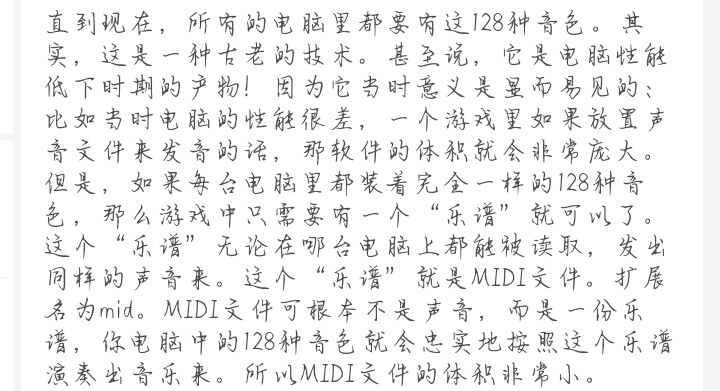 直到现在，所有的电脑里都要有这128种音色。其
实，这是一种古老的技术。甚至说，它是电脑性能
低下时期的产物！因为它当时意义是显而易见的；
比如当时电脑的性能很差，一个游戏里如果放置声
音文件来发音的话，那软件的体积就会非常庞大。
但是，如果每台电脑里都装着完全一样的128种音
色，那么游戏中只需要有一个“乐谱”就可以了。
这个“乐谱”无论在哪台电脑上都能被读取，发出
同样的声音来。这个“乐谱”就是MIDI文件。扩展
名为mid。MIDI文件可根本不是声音，而是一份乐
谱，你电脑中的128种音色就会忠实地按照这个乐谱
演奏出音乐来。所以MIDI文件的体积非常小。